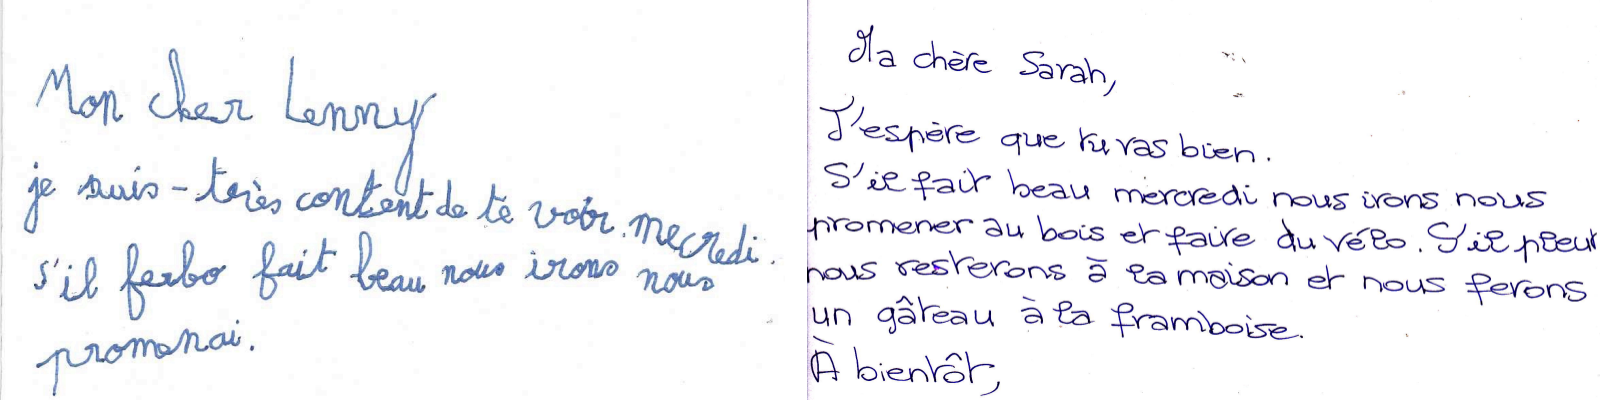 Mon cher Lenny
je suis-terès content de te voir mecredi.
s'il ferbo fait beau nous irons nous
promenai.
Ma chère Sarah,
J'espère que tu vas bien.
S'il fait beau mercredi nous irons nous
promener au bois et faire du vélo. S'il pleut
nous resterons à la maison et nous ferons
un gâteau à la framboise.
À bientôt,